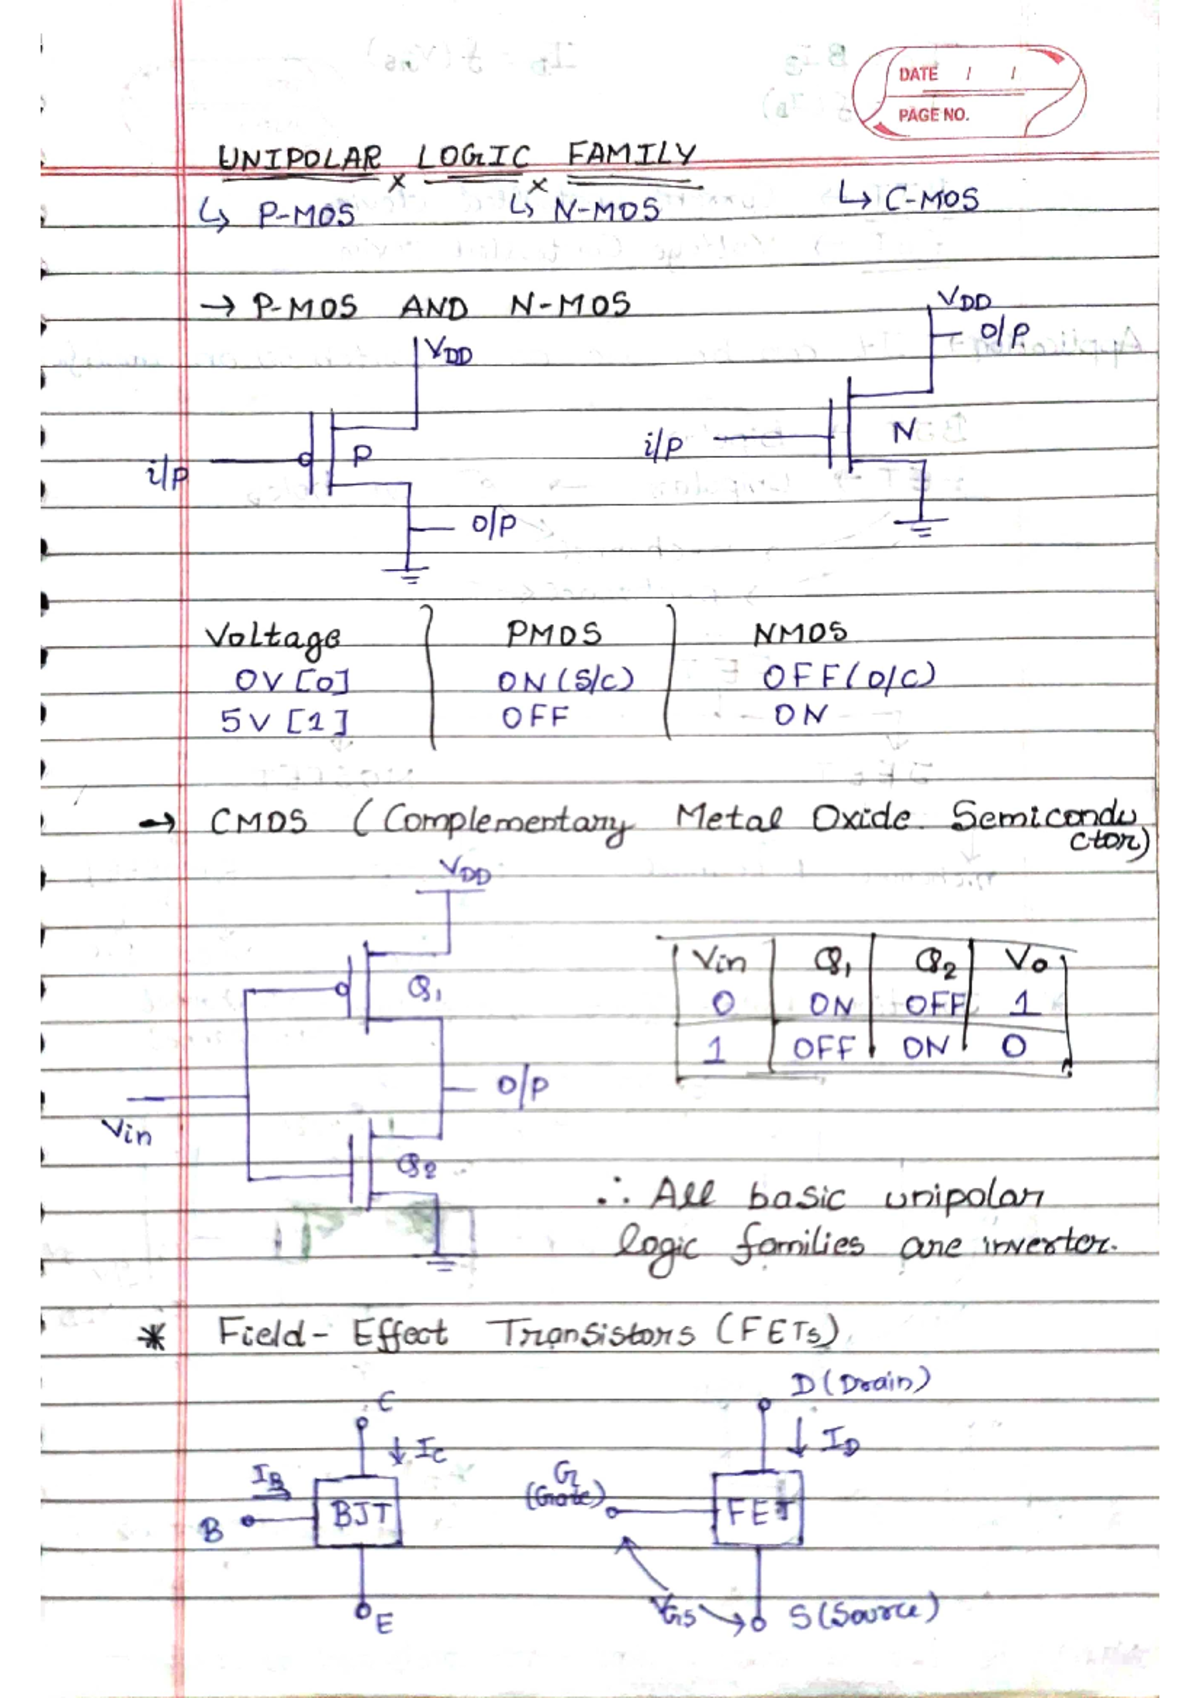 DATE / /
PAGE NO.
UNIPOLAR LOGIC FAMILY
↳ P-MOS ↳ N-MOS ↳ C-MOS
→ P-MOS AND N-MOS
VDD
VDD
O/P
i/p
P
O/P
i/p
N
Voltage PMOS NMOS
0V [0] ON (S/C) OFF (O/C)
5V [1] OFF ON
→ CMOS (Complementary Metal Oxide Semicondu
ctor)
VDD
Q1
O/P
Vin
Q2
Vin Q1 Q2 Vo
0 ON OFF 1
1 OFF ON 0
∴ All basic unipolar
logic families are invertor.
* Field-Effect Transistors (FETs)
C
IC
IB
B
BJT
E
D (Drain)
ID
G
(Gate)
FET
VGS
S (Source)